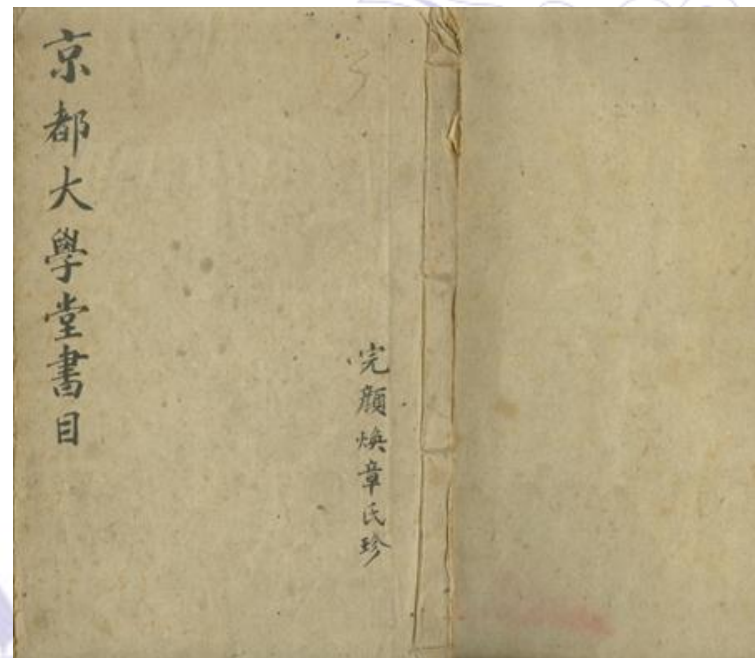 京都大學堂書目
完顏煥章氏珍